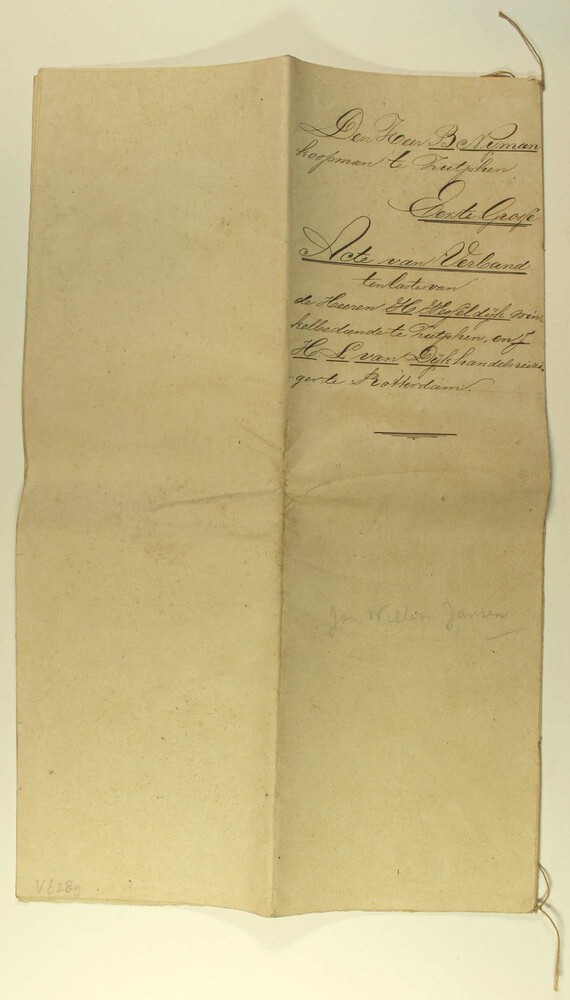 Den Heer B Nijman
koopman te Zutphen
Eerste Grosse
Acte van Verband
ten laste van
de Heeren H. dijk win-
kelbediende te Zutphen, en
H L van Dijk handelsreizi-
ger te Rotterdam.
Jan Willem Jansen